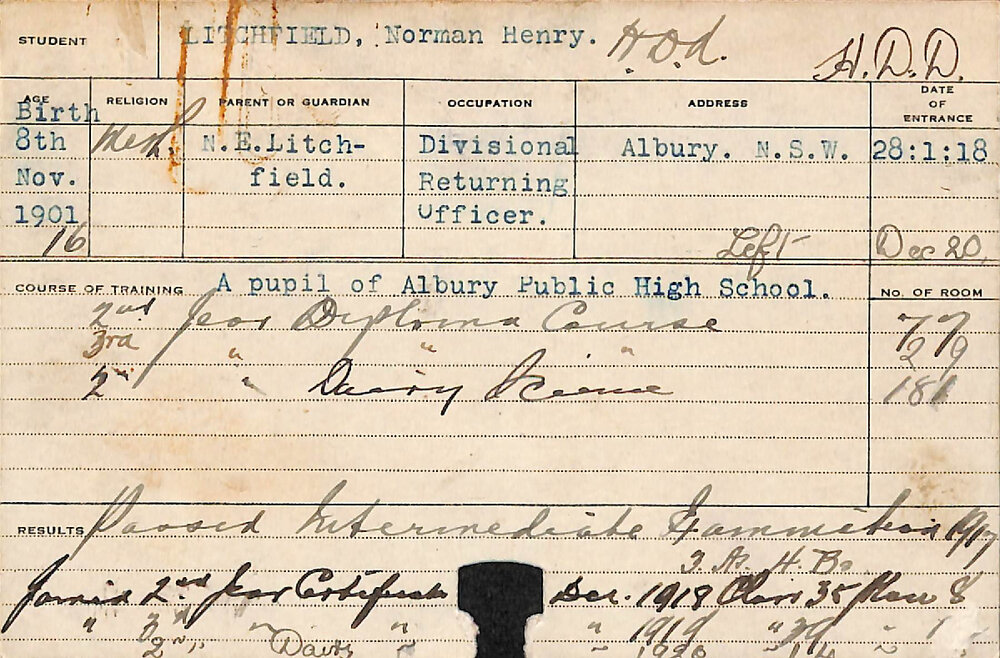 STUDENT LITCHFIELD, Norman Henry. H.D.d. H.D.D.
AGE RELIGION PARENT OR GUARDIAN OCCUPATION ADDRESS DATE OF ENTRANCE
Birth
8th Meth. N.E.Litch- Divisional Albury. N.S.W. 28:1:18
Nov. field. Returning
1901 Officer.
16 Left Dec 20
COURSE OF TRAINING A pupil of Albury Public High School. No. OF ROOM
2nd Year Diploma Course 77
3rd " " " 29
2nd " " Dairy Science 181
RESULTS Passed Intermediate Examination 1917
3 As. 4 Bs
2nd Year Certificate Dec. 1918 Class 35 Pass 8
" 3rd " " " 1919 " 39 "
2nd " Dairy " " 1920 " 14 "